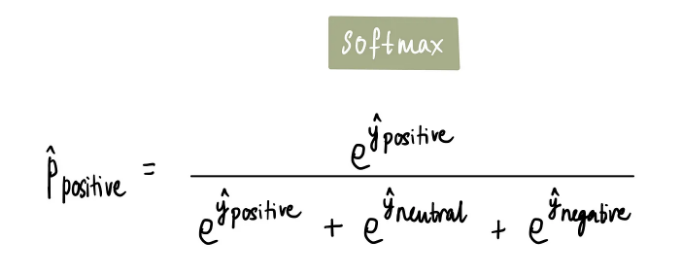 softmax
e^ŷpositive
p̂positive =
e^ŷpositive + e^ŷneutral + e^ŷnegative